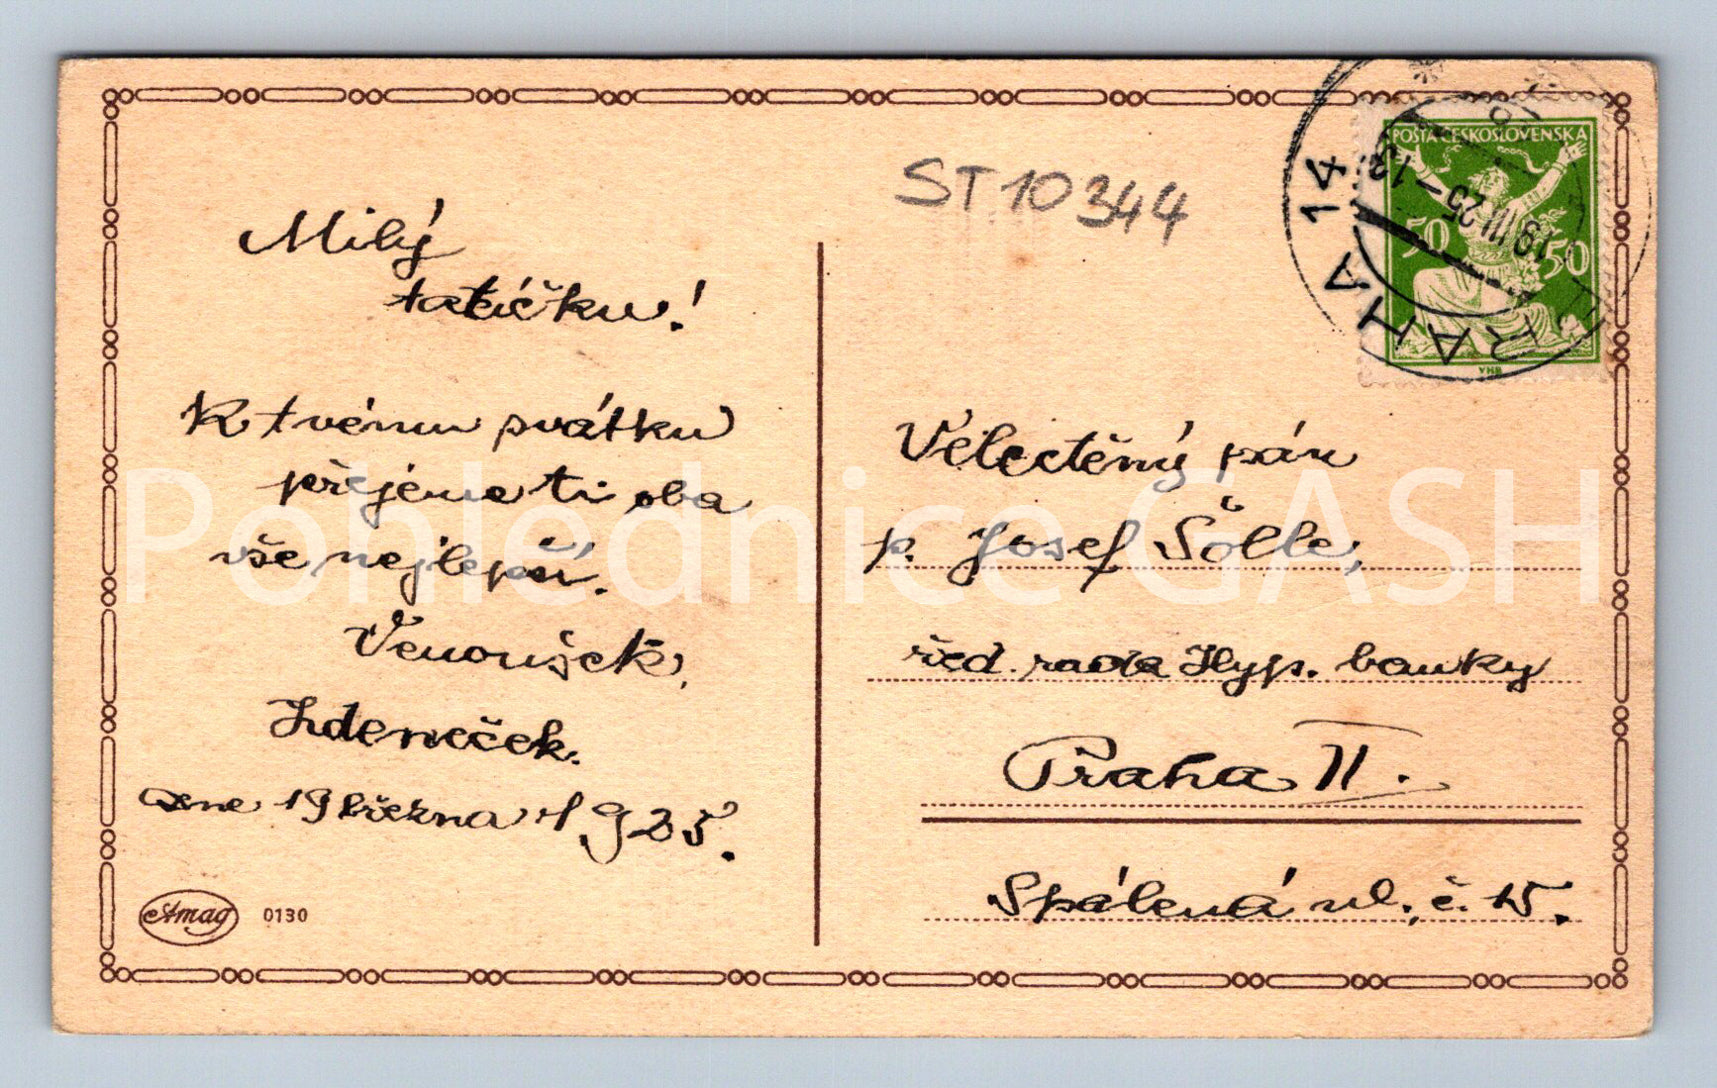 Milý
tatíčku!
K tvému svátku
přejeme ti oba
vše nejlepší.
Zdeneček.
dne 19 března 1925.
Amag 0130
ST 10344
POŠTA ČESKOSLOVENSKA
50 50
VHB
PRAHA 14
19 III 25-12
Velectěný pán
p. Josef Šolle,
řed. rada Hyp. banky
Praha II.
Spálená ul., č. 15.
Pohlednice GASH